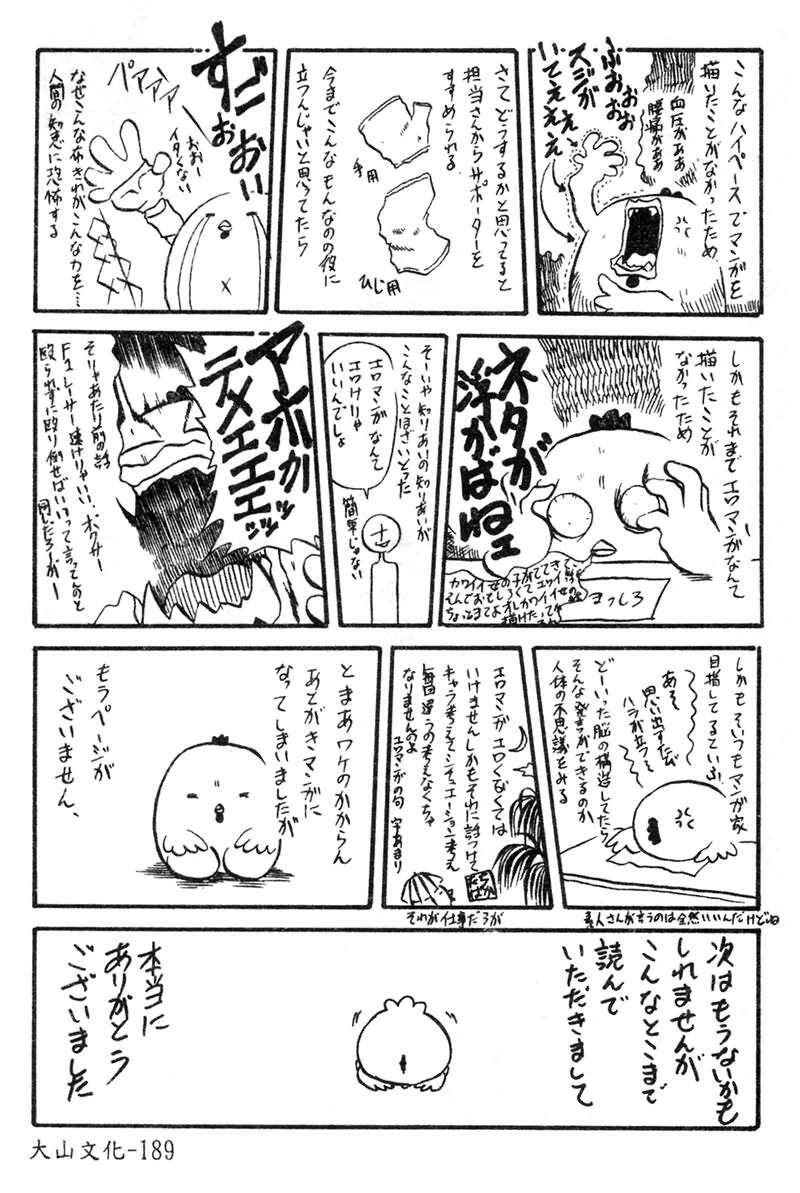 こんなハイペースでマンガを
描いたことがなかったため
血圧がああ
腰痛がああ
ふおおお
おお
スジが
いてええええ
さてどうするかと思ってると
担当さんからサポーターを
すすめられる
手用
ひじ用
今までこんなもんなのの役に
立つんじゃいと思ってたら
すごおおい
おおー
イタくない
パァァァ
なぜこんな布きれがこんな力を…
人間の知恵に恐怖する
しかもそれまでエロマンガなんて
描いたことが
なかったため
ネタが
浮かばねェ
カワイイ女の子がでてきて
まっしろ
そーいや知りあいの知りあいが
こんなことほざいとった
エロマンガなんて
エロけりゃ
いいんでしょ
簡単じゃない
アホか
テメエエエッッ
そりゃあたり前の話
F1レーサー速けりゃいい、ボクサー
殴られずに殴り倒せばいいって言ってんのと
同じだろがー
しかもそいつもマンガ家
目指してるていう
あそ
思い出すたび
ハラが立つぞ
どーいった脳の構造してたら
そんな発言ができるのか
人体の不思議をみる
素人さんが言うのは全然いいんだけどね
エロマンガエロくなくては
いけませんしかもそれに詰つけて
キャラ考えてシチュエーション考え
毎回違うの考えなくちゃ
なりませんのよ
エロマンガの句 字あまり
それが仕事だろが
とまあワケのわからん
あとがきマンガに
なってしまいましたが
もうページが
ございません、
次はもうないかも
しれませんが
こんなとこまで
読んで
いただきまして
本当に
ありがとう
ございました
大山文化-189